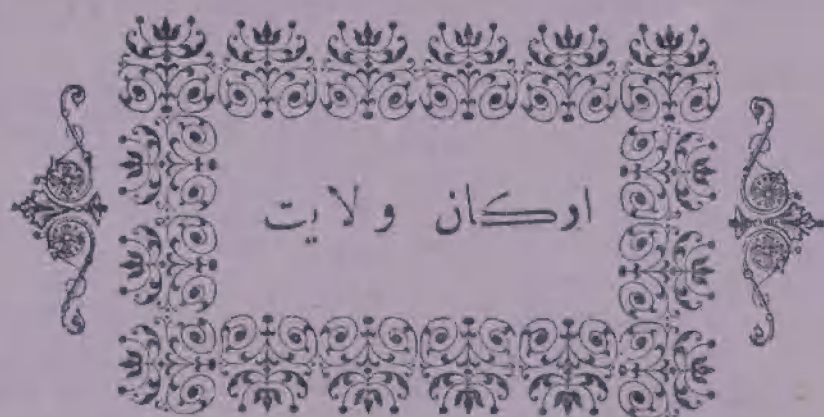 ارکان ولایت